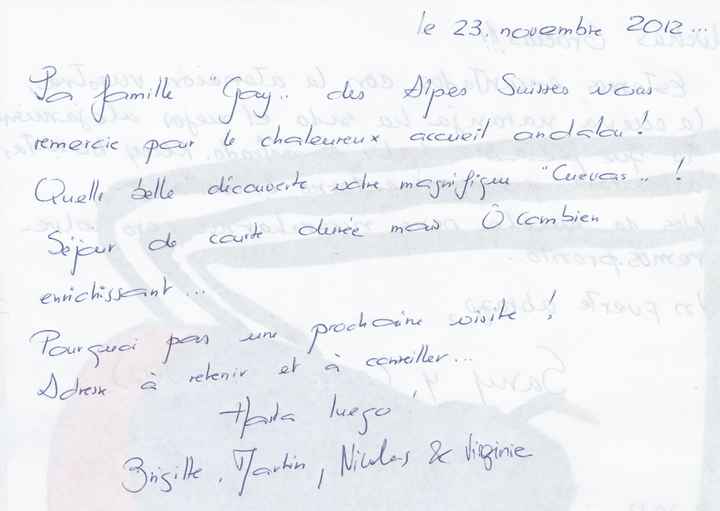 le 23. novembre 2012...
La famille Gay.. des Alpes Suisses vous
remercie pour le chaleureux accueil andalou !
Quelle belle découverte votre magnifique "Cuevas.. !
Séjour de courte durée mais Ô combien
enrichissant...
Pourquoi pas une prochaine visite !
Adresse à retenir et à conseiller...
Hasta luego
Brigitte, Martin, Nicolas & Virginie